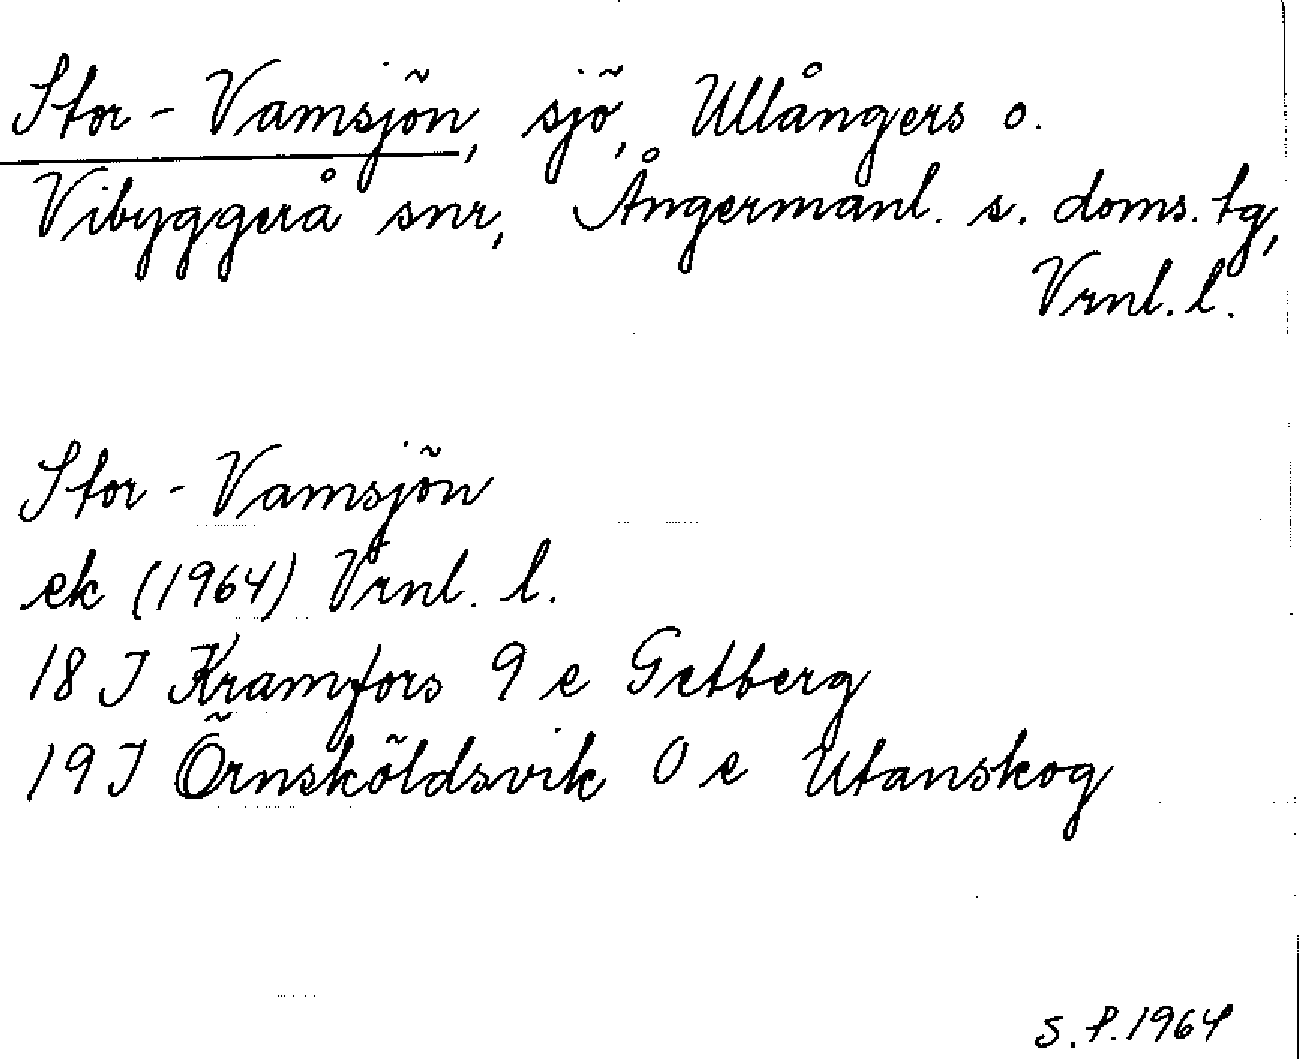 Stor-Vamsjön, sjö, Ullångers o.
Vibyggerå snr, Ångermanl. s. doms. tg,
Vrnl. l.
Stor-Vamsjön
ek (1964) Vrnl. l.
18 I Kramfors 9 e Getberg
19 I Örnsköldsvik 0 e Utanskog
S.P. 1964